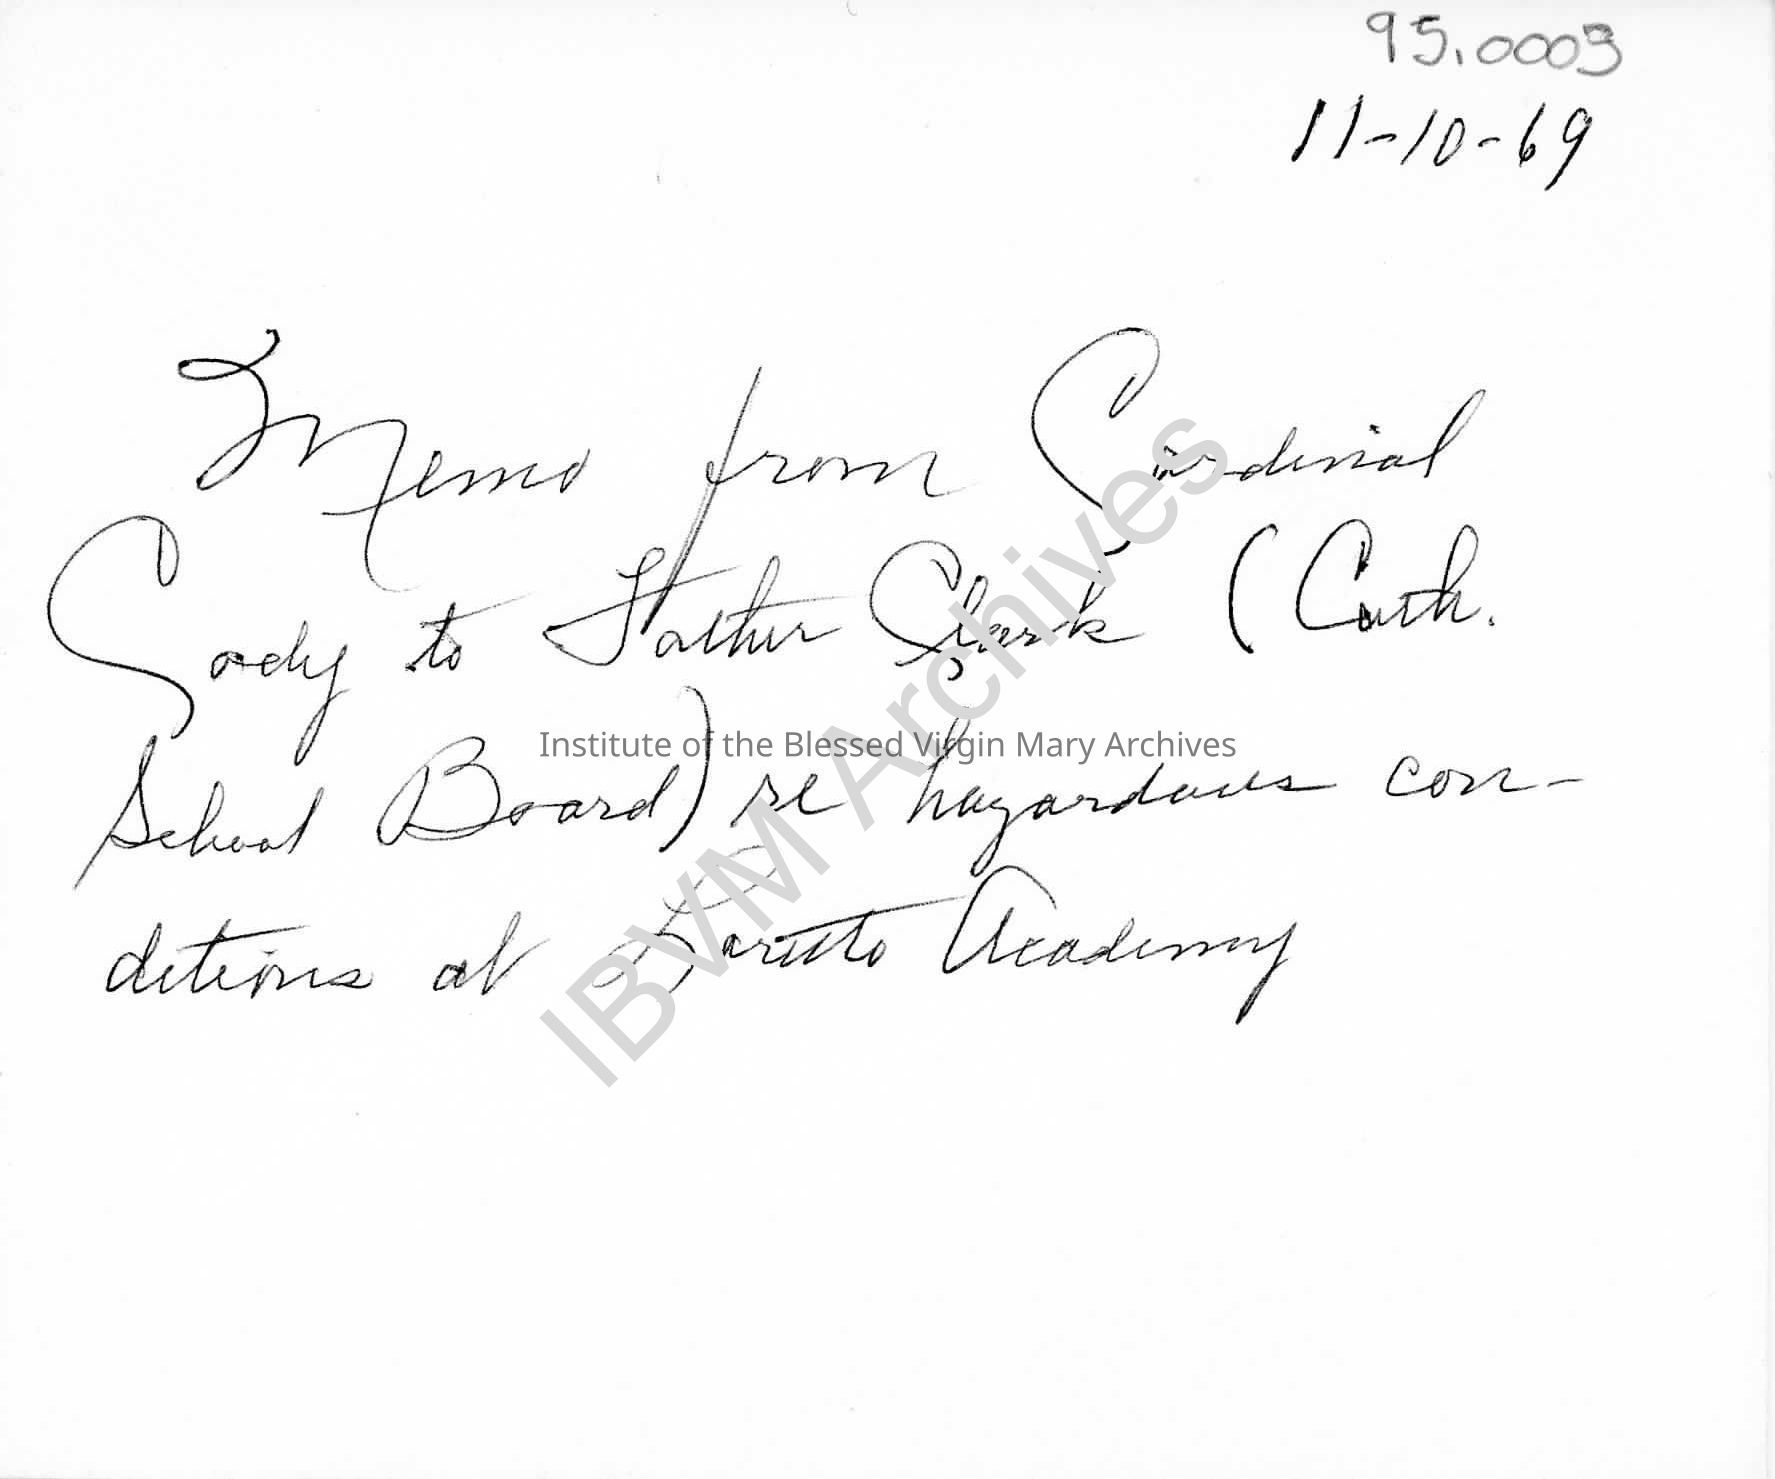 95.0003
11-10-69
Memo from Cardinal
Cody to Father Clark (Cath.
School Board) re hazardous con-
ditions at Loretto Academy
Institute of the Blessed Virgin Mary Archives
IBVM Archives